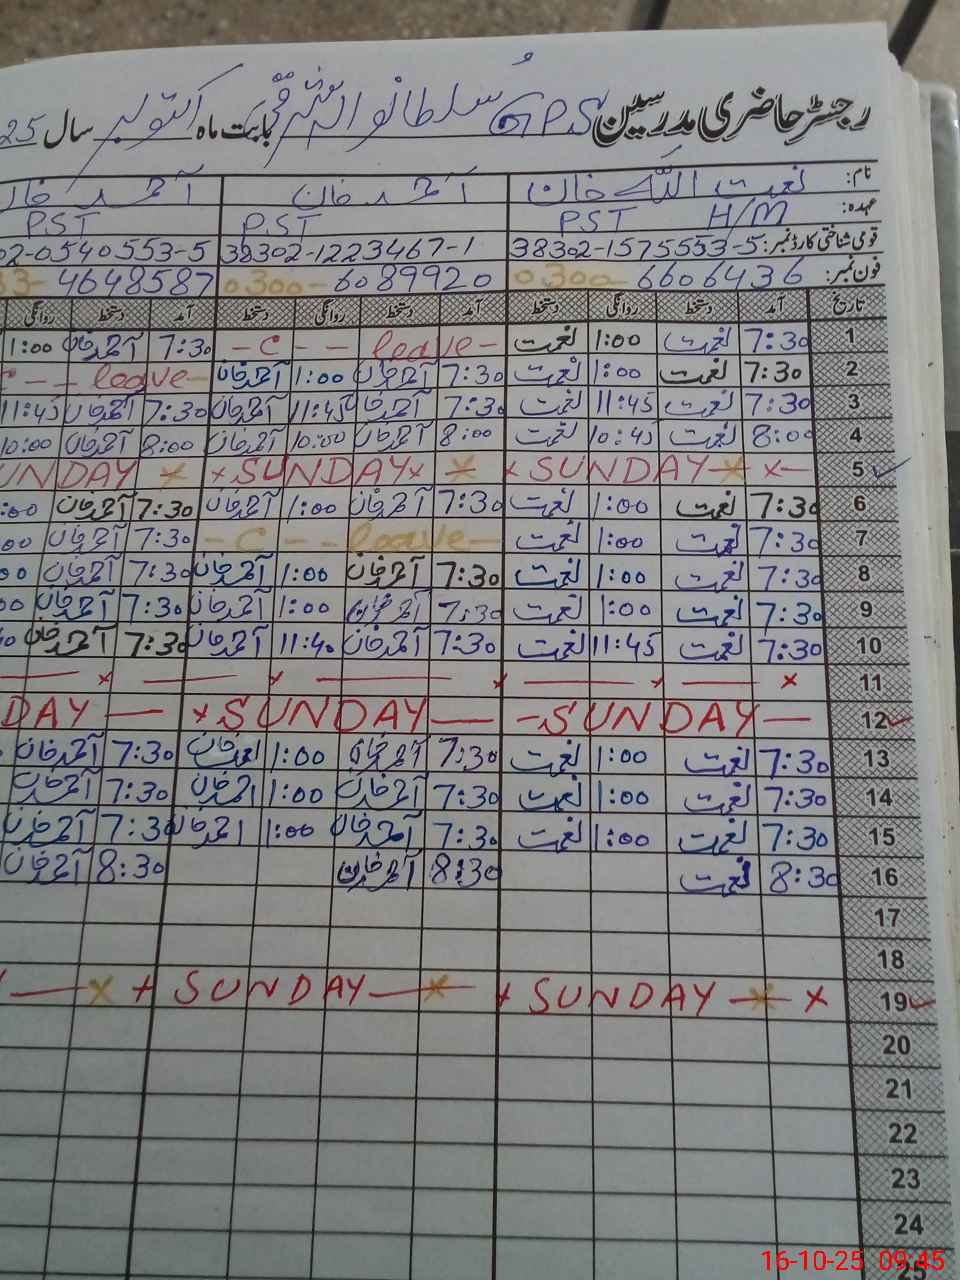 رجسٹر حاضری مدرسین GPS سلطانوالہ شرقی بابت ماہ اکتوبر سال 25
نام: نعمت اللہ خان احمد خان
عہدہ: PST H/M PST PST
قومی شناختی کارڈ نمبر: 38302-1575553-5 38302-1223467-1 02-0540553-5
فون نمبر: 0300-6606436 0300-6089920 4648587
تاریخ آمد دستخط روانگی دستخط آمد دستخط روانگی دستخط آمد دستخط روانگی
1 7:30 نعمت 1:00 نعمت - C - - leave - 7:30 احمد خان 1:00
2 7:30 نعمت 1:00 نعمت 7:30 احمد خان 1:00 احمد خان C - - leave -
3 7:30 نعمت 11:45 نعمت 7:30 احمد خان 11:45 احمد خان 7:30 احمد خان 11:45
4 8:00 نعمت 10:45 نعمت 8:00 احمد خان 10:00 احمد خان 8:00 احمد خان 10:00
5 SUNDAY SUNDAY UNDAY
6 7:30 نعمت 1:00 نعمت 7:30 احمد خان 1:00 احمد خان 7:30 احمد خان :00
7 7:30 نعمت 1:00 نعمت - C - - leave - 7:30 احمد خان 00
8 7:30 نعمت 1:00 نعمت 7:30 احمد خان 1:00 احمد خان 7:30 احمد خان 00
9 7:30 نعمت 1:00 نعمت 7:30 احمد خان 1:00 احمد خان 7:30 احمد خان 00
10 7:30 نعمت 11:45 نعمت 7:30 احمد خان 11:40 احمد خان 7:30 احمد خان
11
12 SUNDAY SUNDAY DAY
13 7:30 نعمت 1:00 نعمت 7:30 احمد خان 1:00 احمد خان 7:30 احمد خان
14 7:30 نعمت 1:00 نعمت 7:30 احمد خان 1:00 احمد خان 7:30 احمد خان
15 7:30 نعمت 1:00 نعمت 7:30 احمد خان 1:00 احمد خان 7:30 احمد خان
16 8:30 نعمت 8:30 احمد خان 8:30 احمد خان
17
18
19 SUNDAY SUNDAY
20
21
22
23
24
25
16-10-25 09:45